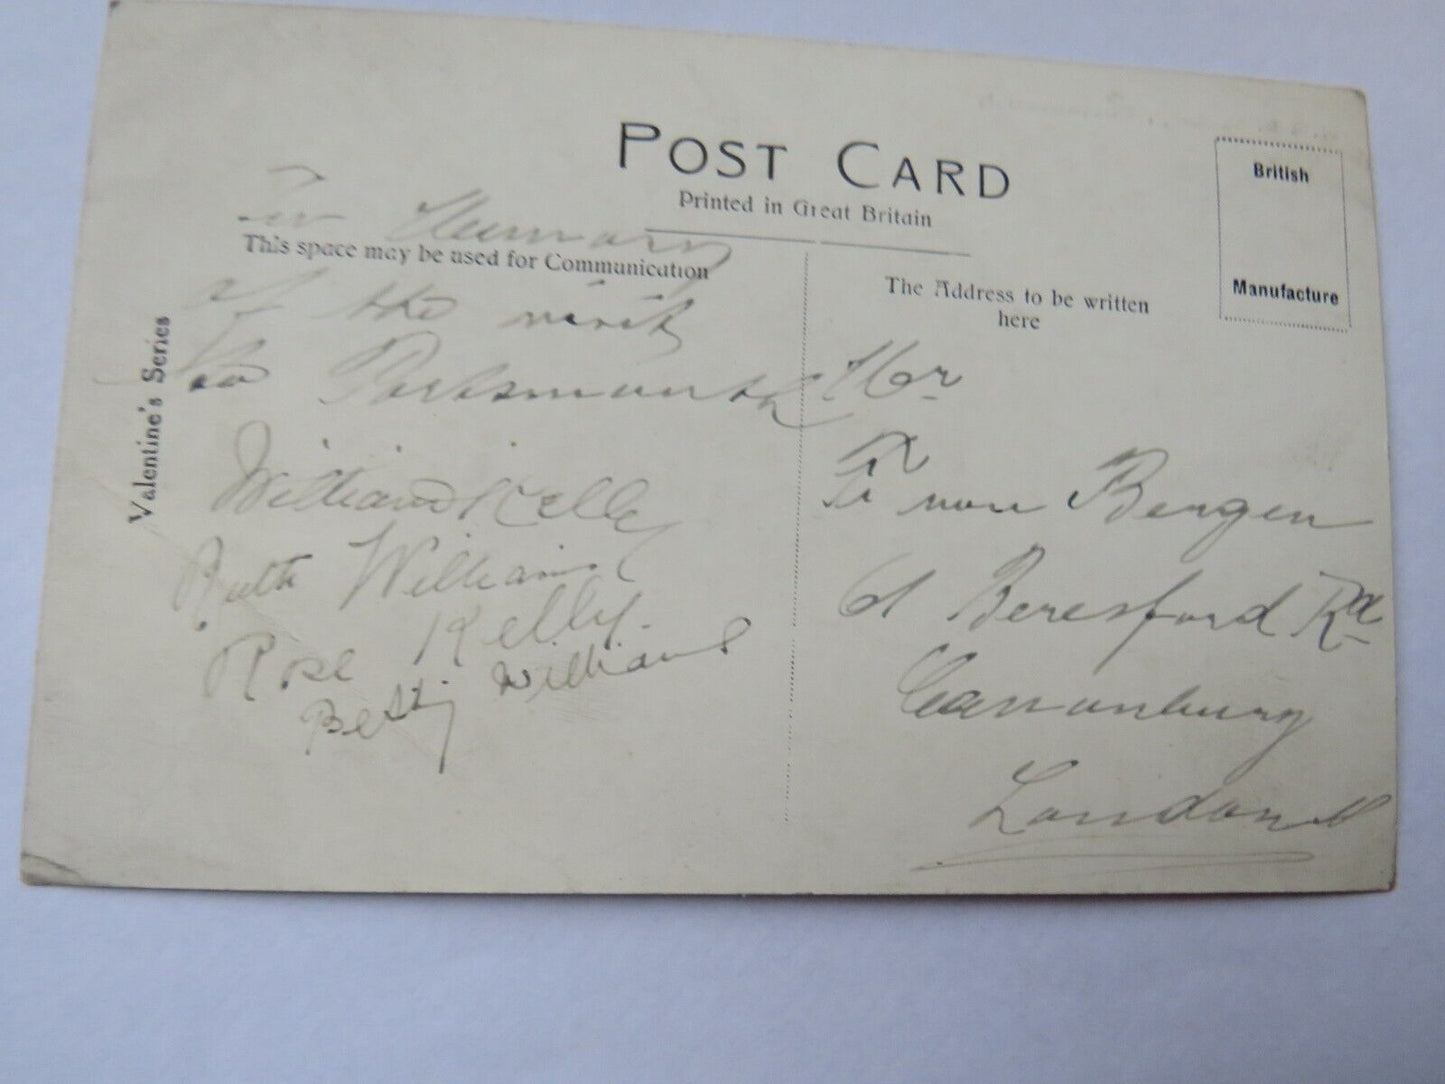 POST CARD
Printed in Great Britain
This space may be used for Communication
The Address to be written
here
British
Manufacture
Valentine's Series
In Memory
of the visit
to Portsmouth
William Kelly
Ruth Williams
Rose Kelly.
Betty Williams
Mr
von Bergen
61 Beresford Rd
Canonbury
London N